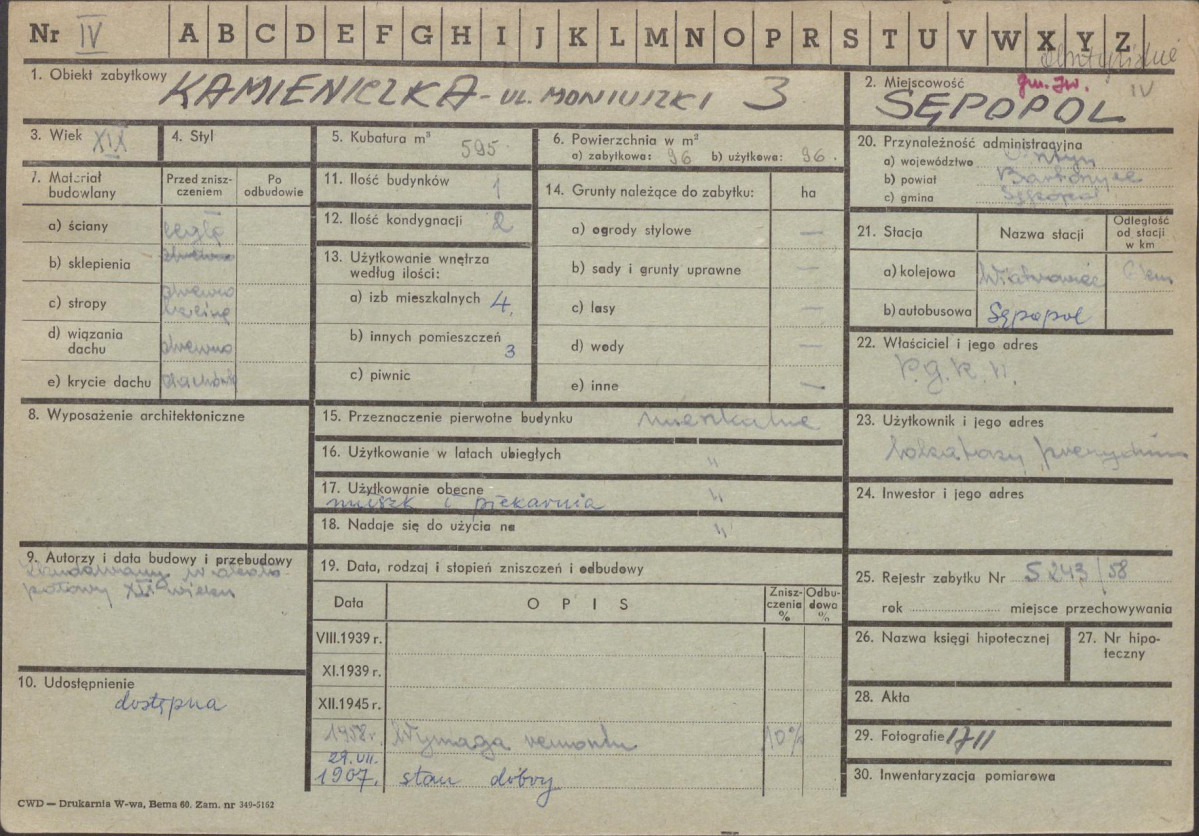 Nr IV A B C D E F G H I J K L M N O P R S T U V W X Y Z
1. Obiekt zabytkowy KAMIENICZKA - UL. MONIUSZKI 3
2. Miejscowość gm. IV
SĘPOPOL
3. Wiek XIX
4. Styl
5. Kubatura m³ 595
6. Powierzchnia w m²
a) zabytkowa: 96 b) użytkowa: 96
7. Materiał budowlany
Przed zniszczeniem
Po odbudowie
a) ściany cegła
b) sklepienia
c) stropy drewno
d) wiązania dachu drewno
e) krycie dachu
8. Wyposażenie architektoniczne
9. Autorzy i data budowy i przebudowy
połowy wieku
10. Udostępnienie
dostępna
11. Ilość budynków 1
12. Ilość kondygnacji 2
13. Użytkowanie wnętrza
według ilości:
a) izb mieszkalnych 4
b) innych pomieszczeń 3
c) piwnic
14. Grunty należące do zabytku: ha
a) ogrody stylowe —
b) sady i grunty uprawne —
c) lasy —
d) wody —
e) inne —
15. Przeznaczenie pierwotne budynku mieszkalne
16. Użytkowanie w latach ubiegłych "
17. Użytkowanie obecne "
mieszk i piekarnia
18. Nadaje się do użycia na "
19. Data, rodzaj i stopień zniszczeń i odbudowy
Data OPIS Zniszczenia % Odbudowa %
VIII.1939 r.
XI.1939 r.
XII.1945 r.
1958r. Wymaga remontu 10%
29.VII.
1967. stan dobry
20. Przynależność administracyjna
a) województwo Olsztyn
b) powiat Bartoszyce
c) gmina Sępopol
21. Stacja Nazwa stacji Odległość od stacji w km
a) kolejowa
b) autobusowa Sępopol
22. Właściciel i jego adres
23. Użytkownik i jego adres
24. Inwestor i jego adres
25. Rejestr zabytku Nr S 243/58
rok miejsce przechowywania
26. Nazwa księgi hipotecznej
27. Nr hipoteczny
28. Akta
29. Fotografie 1711
30. Inwentaryzacja pomiarowa
CWD — Drukarnia W-wa, Bema 60. Zam. nr 349-5162